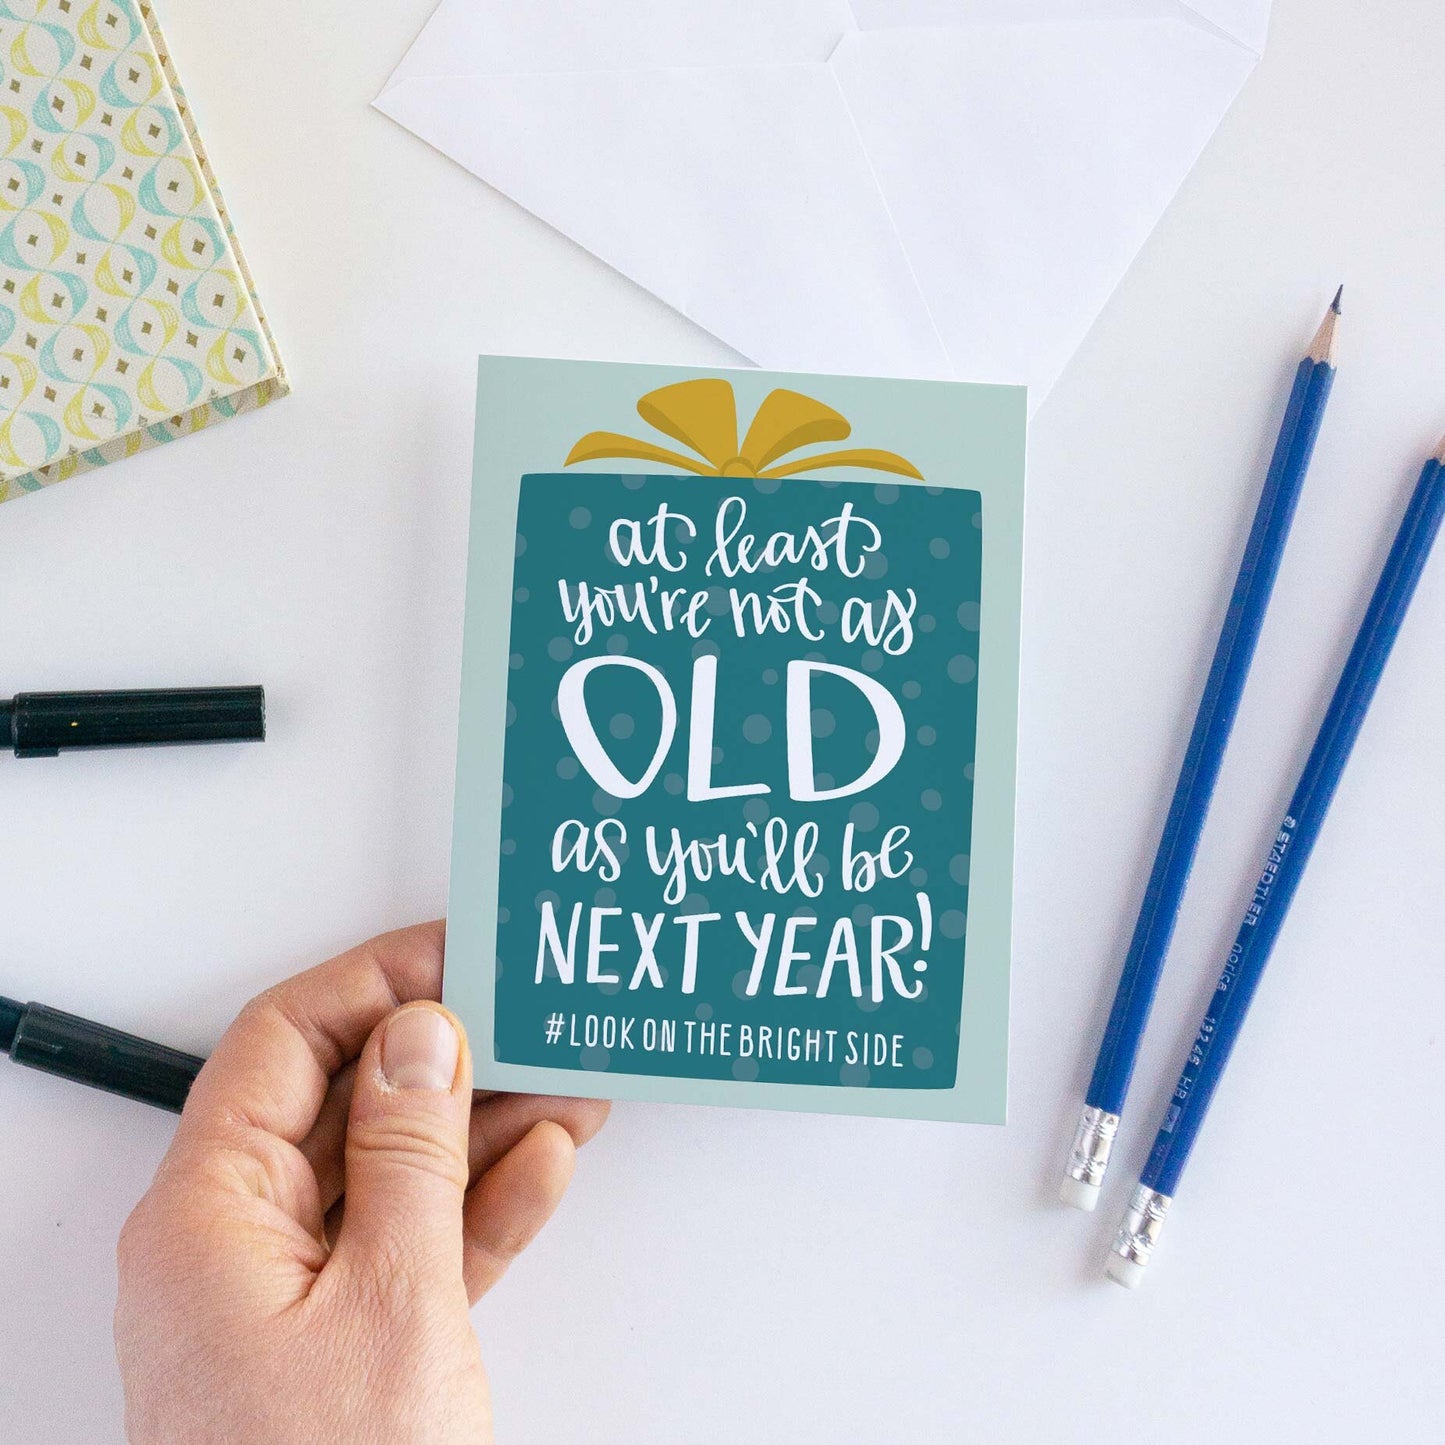 at least
you're not as
OLD
as you'll be
NEXT YEAR!
#LOOK ON THE BRIGHT SIDE
STAEDTLER norica 132 46 HB